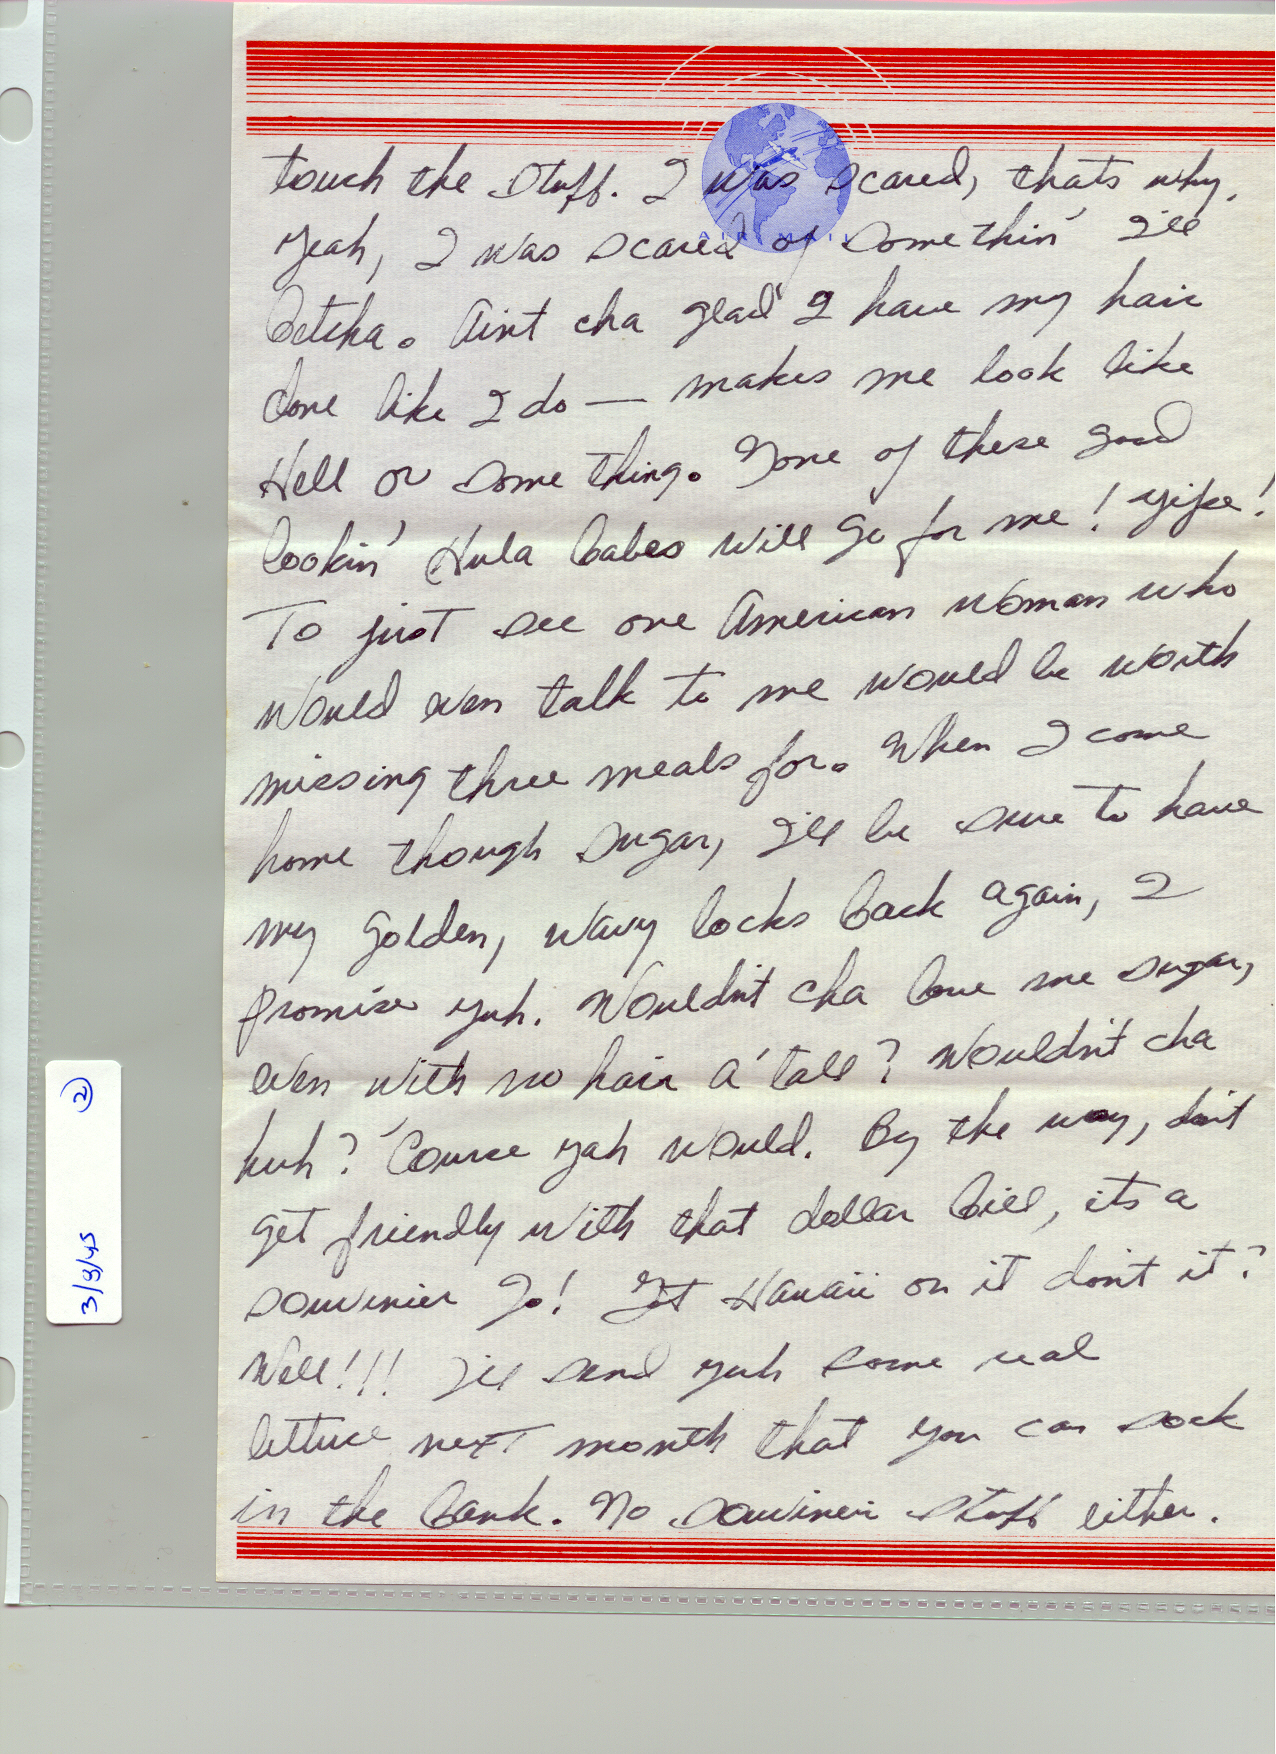 touch the stuff. I was scared, thats why.
AIR MAIL
Yeah, I was scared of somethin' I'll
betcha. Aint cha glad I have my hair
done like I do — makes me look like
Hell or something. None of these good
lookin' Hula babes will go for me! Yipe!
To just see one American woman who
would even talk to me would be worth
missing three meals for. When I come
home though sugar, I'll be sure to have
my golden, wavy locks back again, I
promise yuh. Wouldn't cha love me sugar,
even with no hair a'tall? Wouldn't cha
huh? 'Course yah would. By the way, don't
get friendly with that dollar bill, its a
souvinier Jo! Got Hawaii on it don't it?
Well!!! I'll send yuh some real
lettuce next month that you can sock
in the bank. No souvineir stuff either.
3/8/45 2